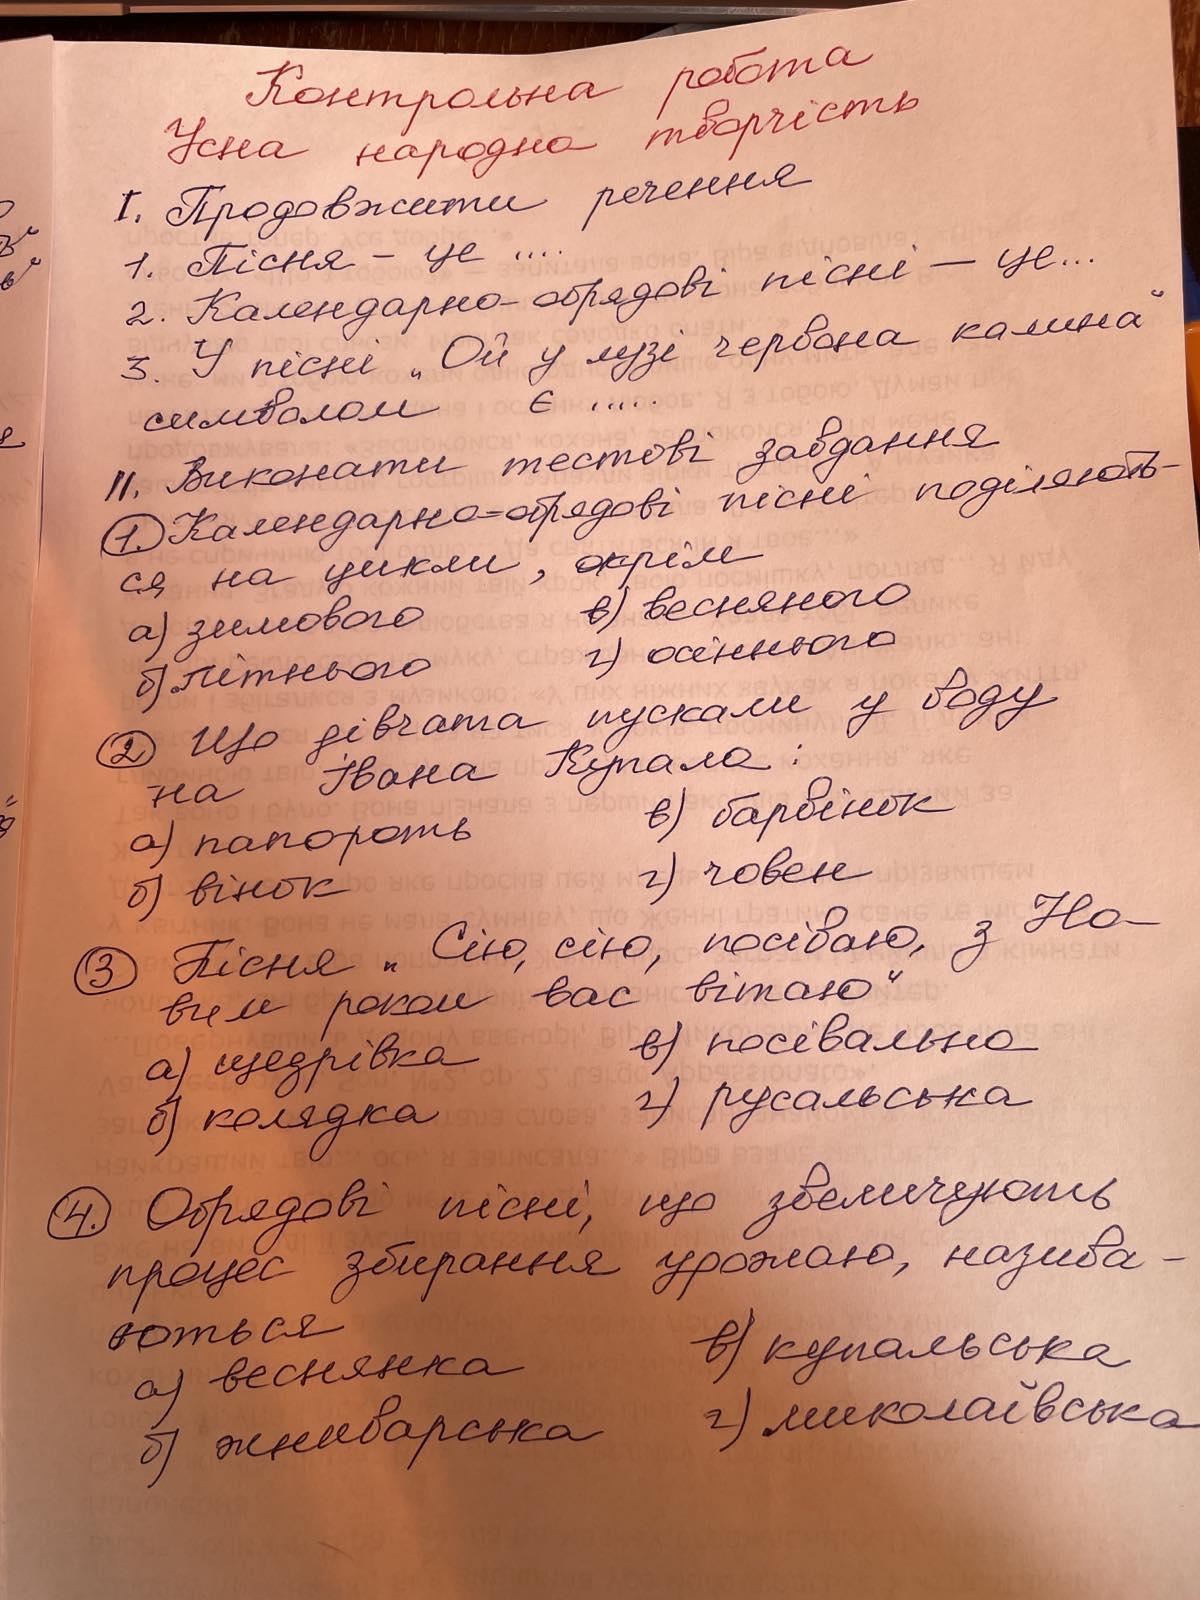 Контрольна робота
Усна народна творчість
I. Продовжити речення
1. Пісня – це ....
2. Календарно-обрядові пісні – це...
3. У пісні „Ой у лузі червона калина"
символом є .....
II. Виконати тестові завдання
1. Календарно-обрядові пісні поділяють-
ся на цикли, окрім
а) зимового в) весняного
б) літнього г) осіннього
2. Що дівчата пускали у воду
на Івана Купала:
а) папороть в) барвінок
б) вінок г) човен
3 Пісня „Сію, сію, посіваю, з Но-
вим роком вас вітаю"
а) щедрівка в) посівальна
б) колядка г) русальська
4. Обрядові пісні, що звеличують
процес збирання урожаю, назива-
ються
а) веснянка в) купальська
б) жниварська г) миколаївська